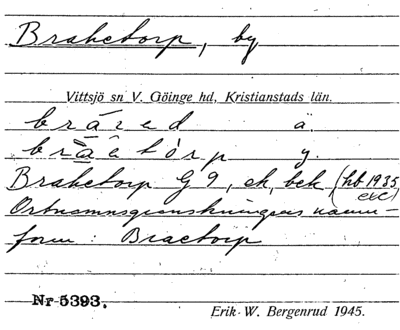 Braketorp, by
Vittsjö sn V. Göinge hd, Kristianstads län.
bråred ä.
bråetòrp y.
Braketorp G 9, ek, bek (hb 1935
Ortnamnsgranskningens namn-
form: Braetorp
Nr 5393.
Erik W. Bergenrud 1945.